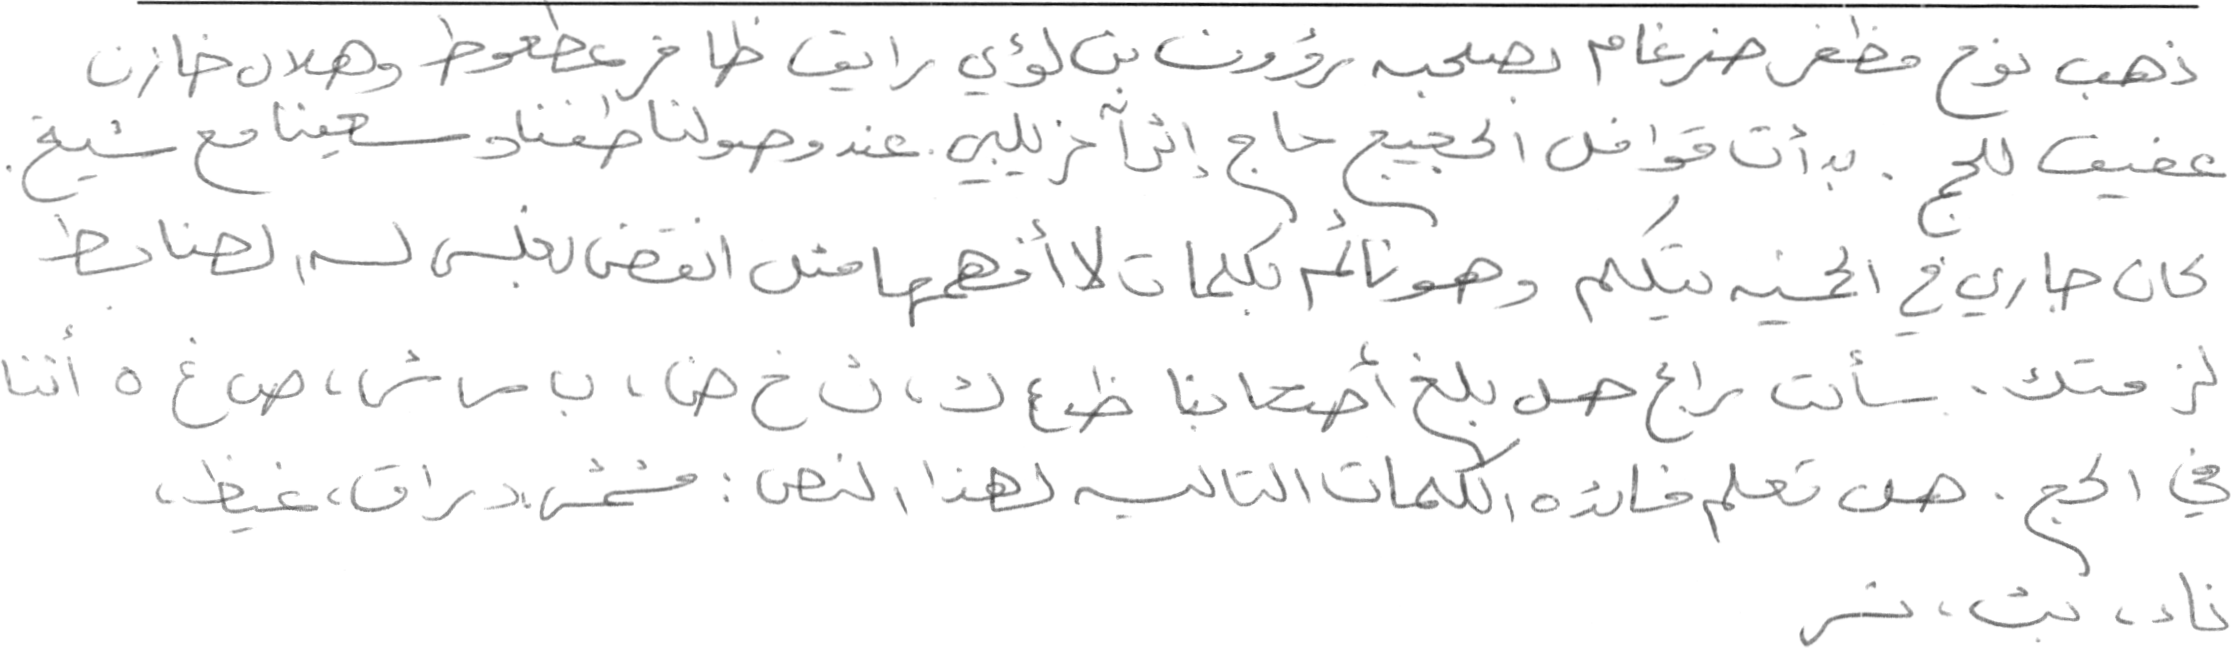 ذهب نوح مظفر ضرغام بصحبه رؤوف بن لؤي رايق ظافر عطعوط وهلال خازن
عفيف للحج . بدأت قوافل الحجيج حاج إثر آخر يلبي . عند وصولنا طفنا وسعينا مع شيخ .
كان جاري في الخيمه يتكلم وهو نائم بكلمات لا أفهمها مثل انقض نعلبس لسم الضابط
لزمتك . سألت رابح هل بلغ أصحابنا ظ ع ك ، ث خ ض ، ب س ش ، ص غ ه أثنا
في الحج . هل تعلم فائده الكلمات التاليه لهذا النص : مشمش ، دراق ، غيظ ،
ناد ، بث ، نسر